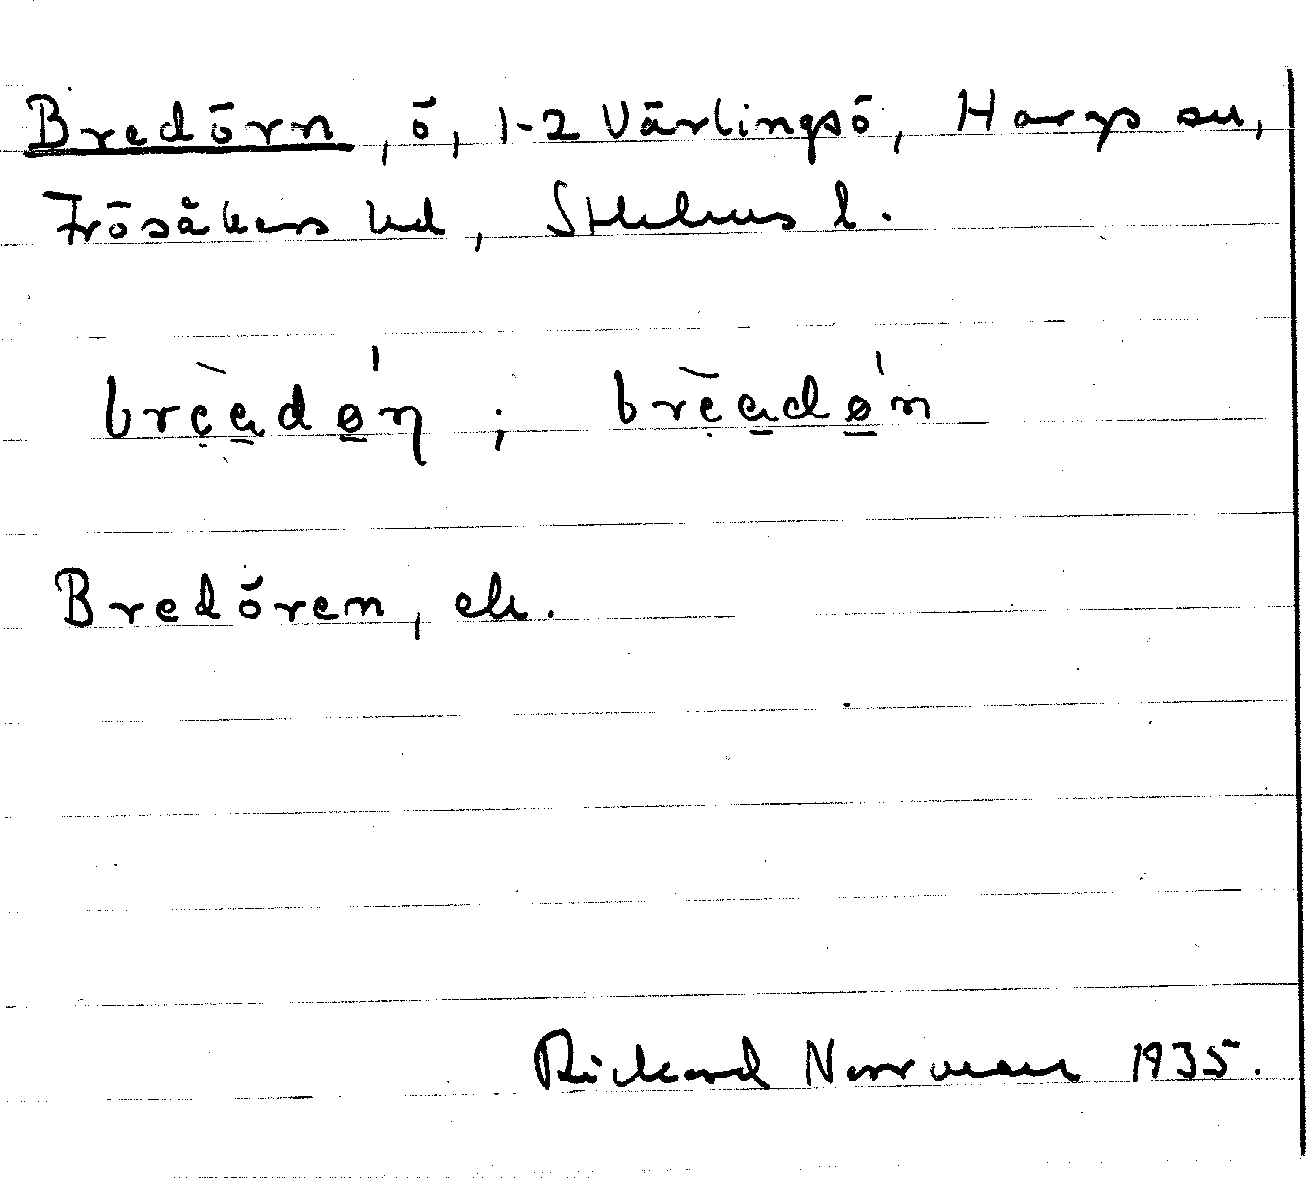 Bredörn, ö, 1-2 Värlingsö, Hargs sn,
Frösåkers hd, Sthlms l.
brèadø'n ; brèadø'n
Bredören, ek.
Rickard Norrman 1935.